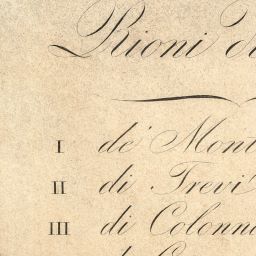 Rioni
I de' Mont
II di Trevi
III di Colonna